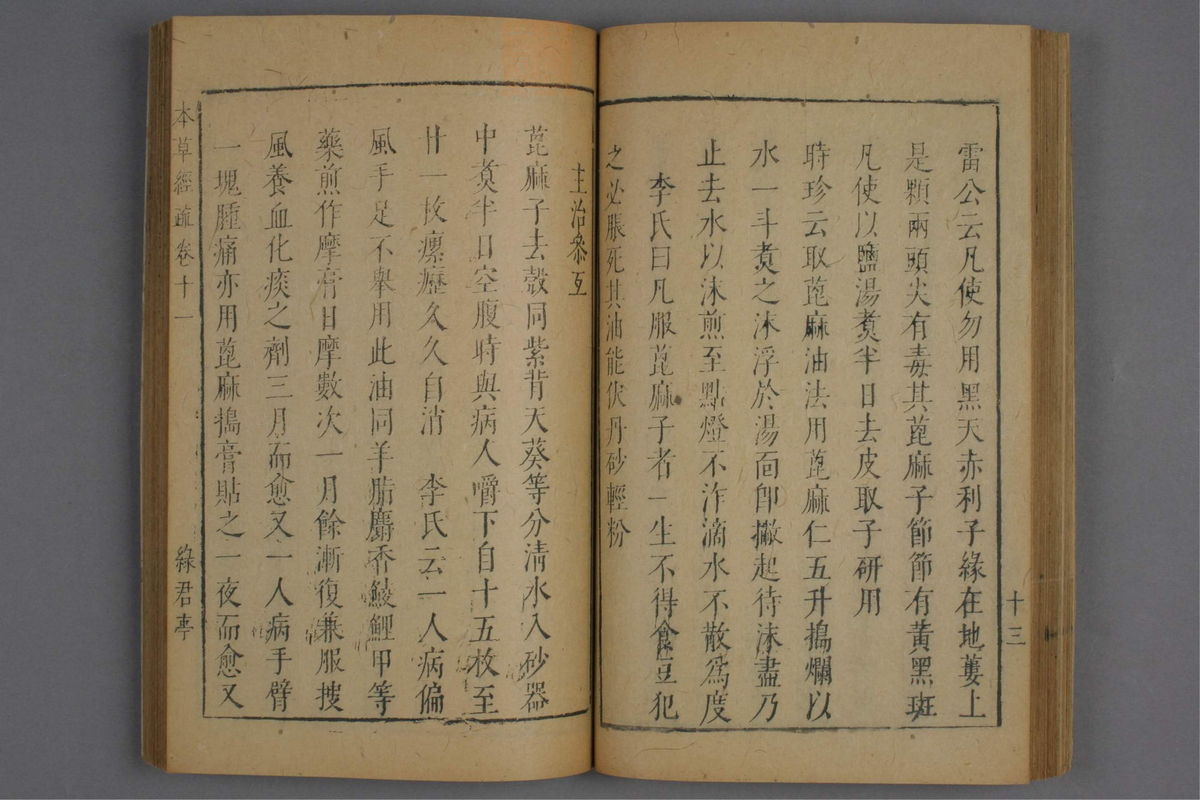 十三
雷公云凡使勿用黑天赤利子緣在地蔞上
是顆兩頭尖有毒其蓖麻子節節有黃黑斑
凡使以鹽湯煑半日去皮取子研用
時珍云取蓖麻油法用蓖麻仁五升搗爛以
水一斗煑之沫浮於湯面即撇起待沫盡乃
止去水以沫煎至點燈不泎滴水不散爲度
李氏曰凡服蓖麻子者一生不得食豆犯
之必脹死其油能伏丹砂輕粉
主治叅互
蓖麻子去殼同紫背天葵等分清水入砂器
中煑半日空腹時與病人嚼下自十五枚至
廿一枚瘰癧久久自消　李氏云一人病偏
風手足不舉用此油同羊脂麝香鯪鯉甲等
藥煎作摩膏日摩數次一月餘漸復兼服搜
風養血化痰之劑三月而愈又一人病手臂
一塊腫痛亦用蓖麻搗膏貼之一夜而愈又
本草經疏卷十一
綠君亭